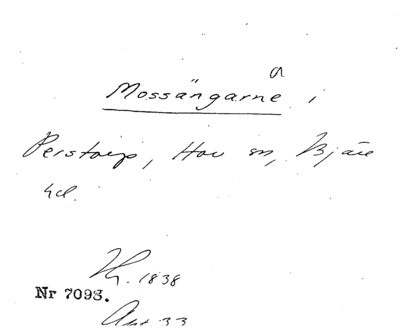 a
Mossängarne i
Perstorp, Hov sn, Bjäre
hd.
1838
Nr 7098.
33